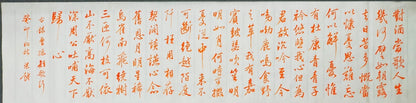 對酒當歌人生
幾何譬如朝露
去日苦多慨當
以慷憂思難忘
何以解憂唯
有杜康青青子
衿悠悠我心但為
君故沈吟至今
呦呦鹿鳴食野
之苹我有嘉
賓鼓瑟吹笙明
明如月何時可掇
憂從中來不
可斷絕越陌度
阡枉用相存
契闊談讌心念
舊恩月明星稀
烏鵲南飛繞樹
三匝何枝可依
山不厭高海不厭
深周公吐哺天下
歸心
短歌行
癸卯